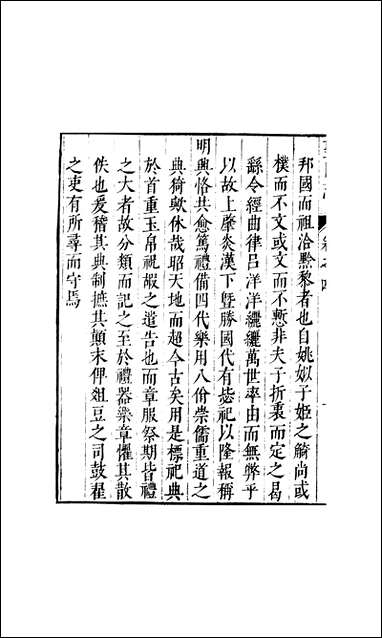 邦國而祖洽黔黎者也自姚姒子姬之觭尚或
樸而不文或文而不慙非夫子折衷而定之曷
繇令經曲律呂洋洋纚纚萬世率由而無弊乎
以故上肇炎漢下曁勝國代有毖祀以隆報稱
明興恪共愈篤禮備四代樂用八佾崇儒重道之
典猗歟休哉昭天地而超今古矣用是標祀典
於首重玉帛祝嘏之遣告也而章服祭期皆禮
之大者故分類而記之至於禮器樂章懼其散
佚也爰稽其典制摭其顚末俾俎豆之司鼓瞿
之吏有所尋而守焉